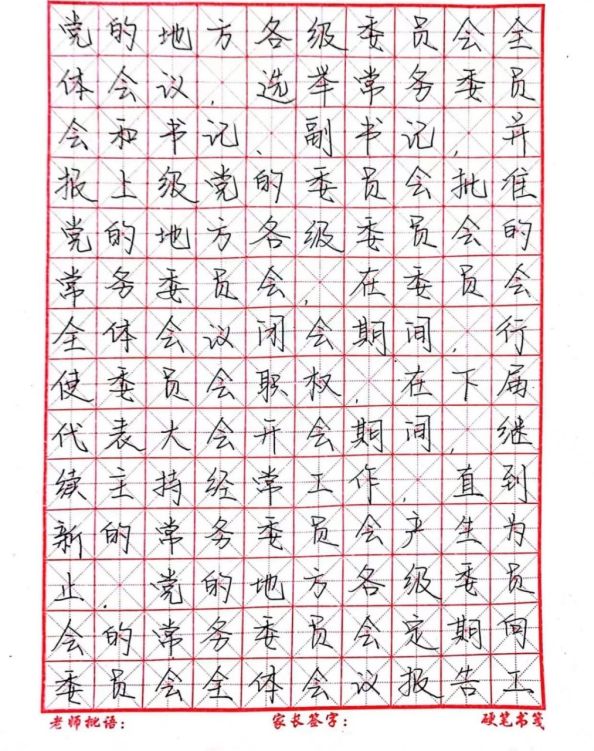 党的地方各级委员会全
体会议，选举常务委员
会和书记、副书记，并
报上级党的委员会批准
党的地方各级委员会的
常务委员会，在委员会
全体会议闭会期间，行
使委员会职权，在下届
代表大会开会期间，继
续主持经常工作，直到
新的常务委员会产生为
止．党的地方各级委员
会的常务委员会定期向
委员会全体会议报告工
老师批语： 家长签字： 硬笔书笺